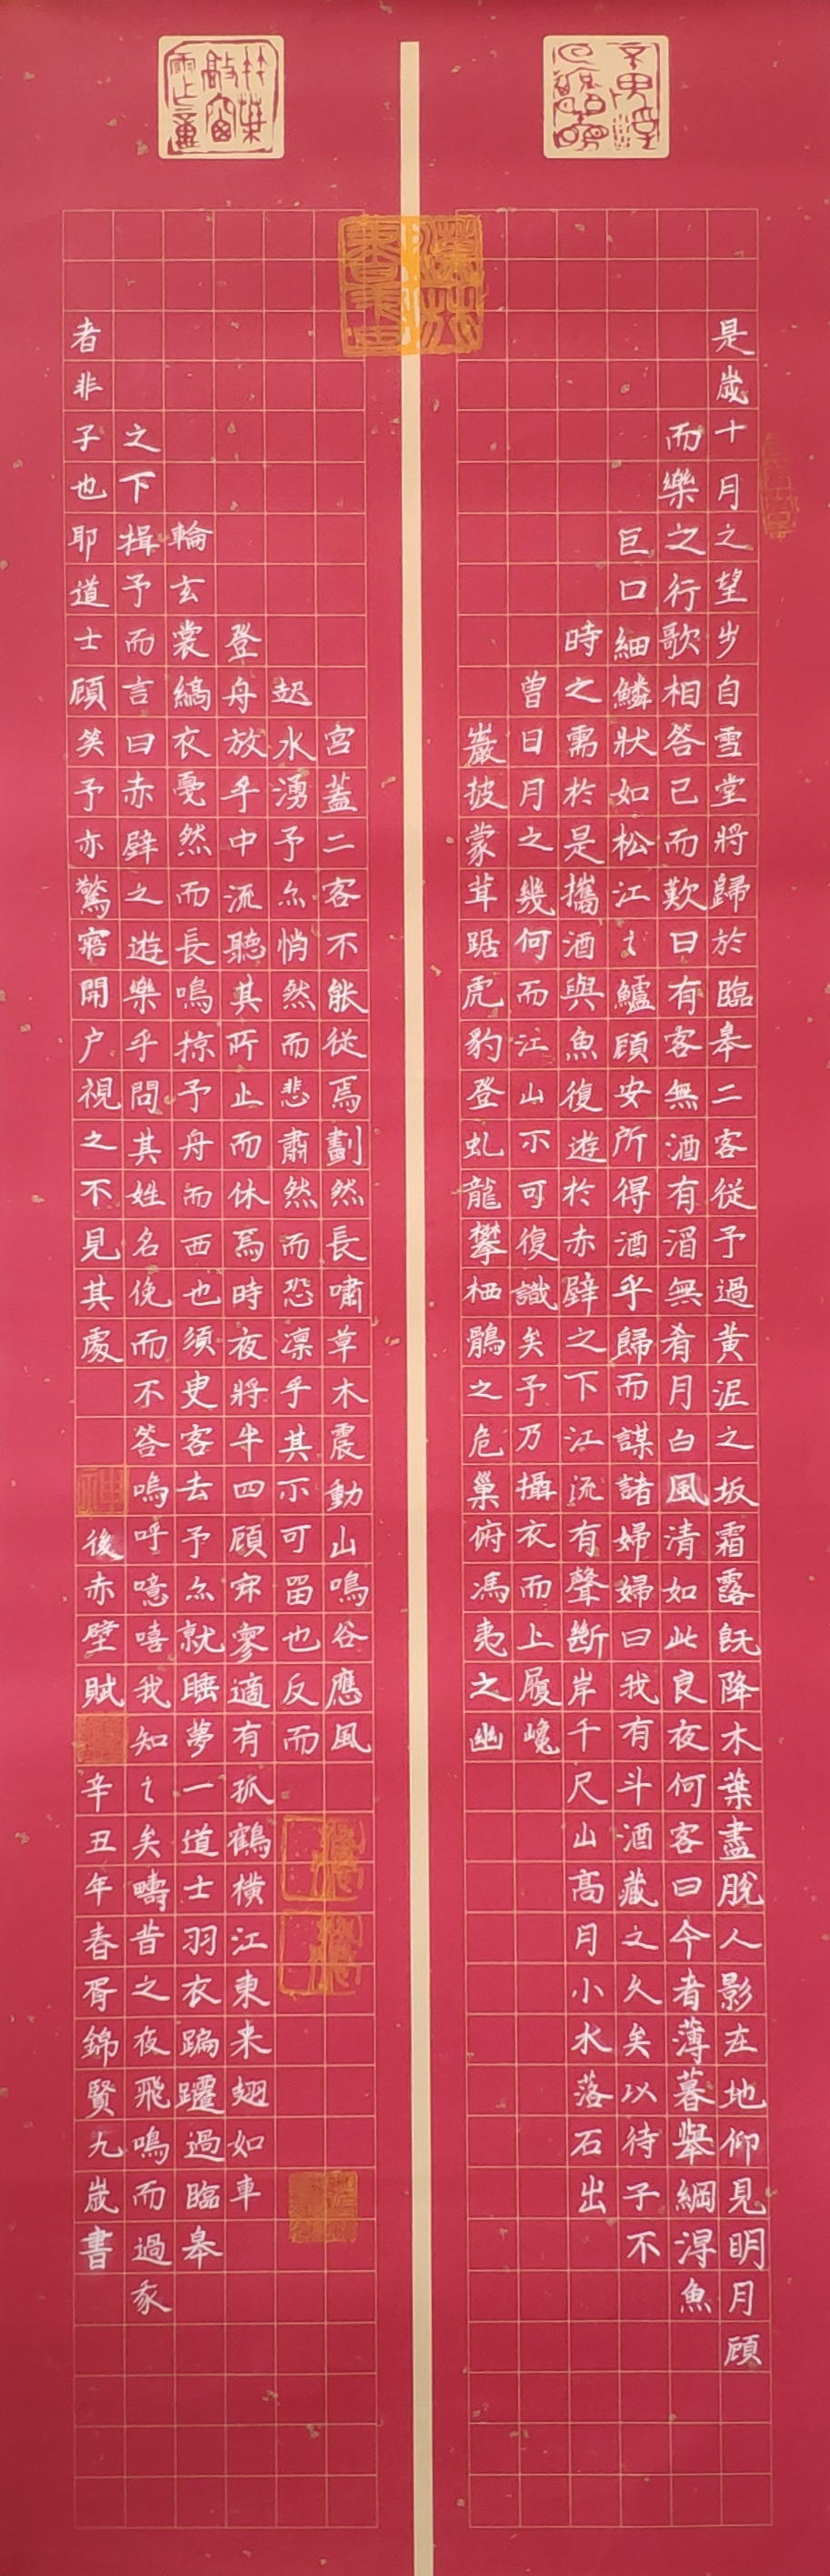 是歲十月之望步自雪堂將歸於臨皋二客從予過黃泥之坂霜露既降木葉盡脫人影在地仰見明月顧
而樂之行歌相答已而歎曰有客無酒有湑無肴月白風清如此良夜何客曰今者薄暮舉網淂魚
巨口細鱗狀如松江〻鱸顧安所得酒乎歸而謀諸婦婦曰我有斗酒藏之久矣以待子不
時之需於是攜酒與魚復遊於赤壁之下江流有聲斷岸千尺山高月小水落石出
曾日月之幾何而江山不可復識矣予乃攝衣而上履巉
巖披蒙茸踞虎豹登虬龍攀栖鶻之危巢俯馮夷之幽
宮蓋二客不能從焉劃然長嘯草木震動山鳴谷應風
起水湧予亦悄然而悲肅然而恐凜乎其不可留也反而
登舟放乎中流聽其所止而休焉時夜將半四顧寂寥適有孤鶴橫江東来翅如車
輪玄裳縞衣戛然而長鳴掠予舟而西也須臾客去予亦就睡夢一道士羽衣蹁躚過臨皋
之下揖予而言曰赤壁之遊樂乎問其姓名俛而不答嗚呼噫嘻我知〻矣疇昔之夜飛鳴而過我
者非子也耶道士顧笑予亦驚寤開户視之不見其處 後赤壁賦 辛丑年春胥錦賢九歲書